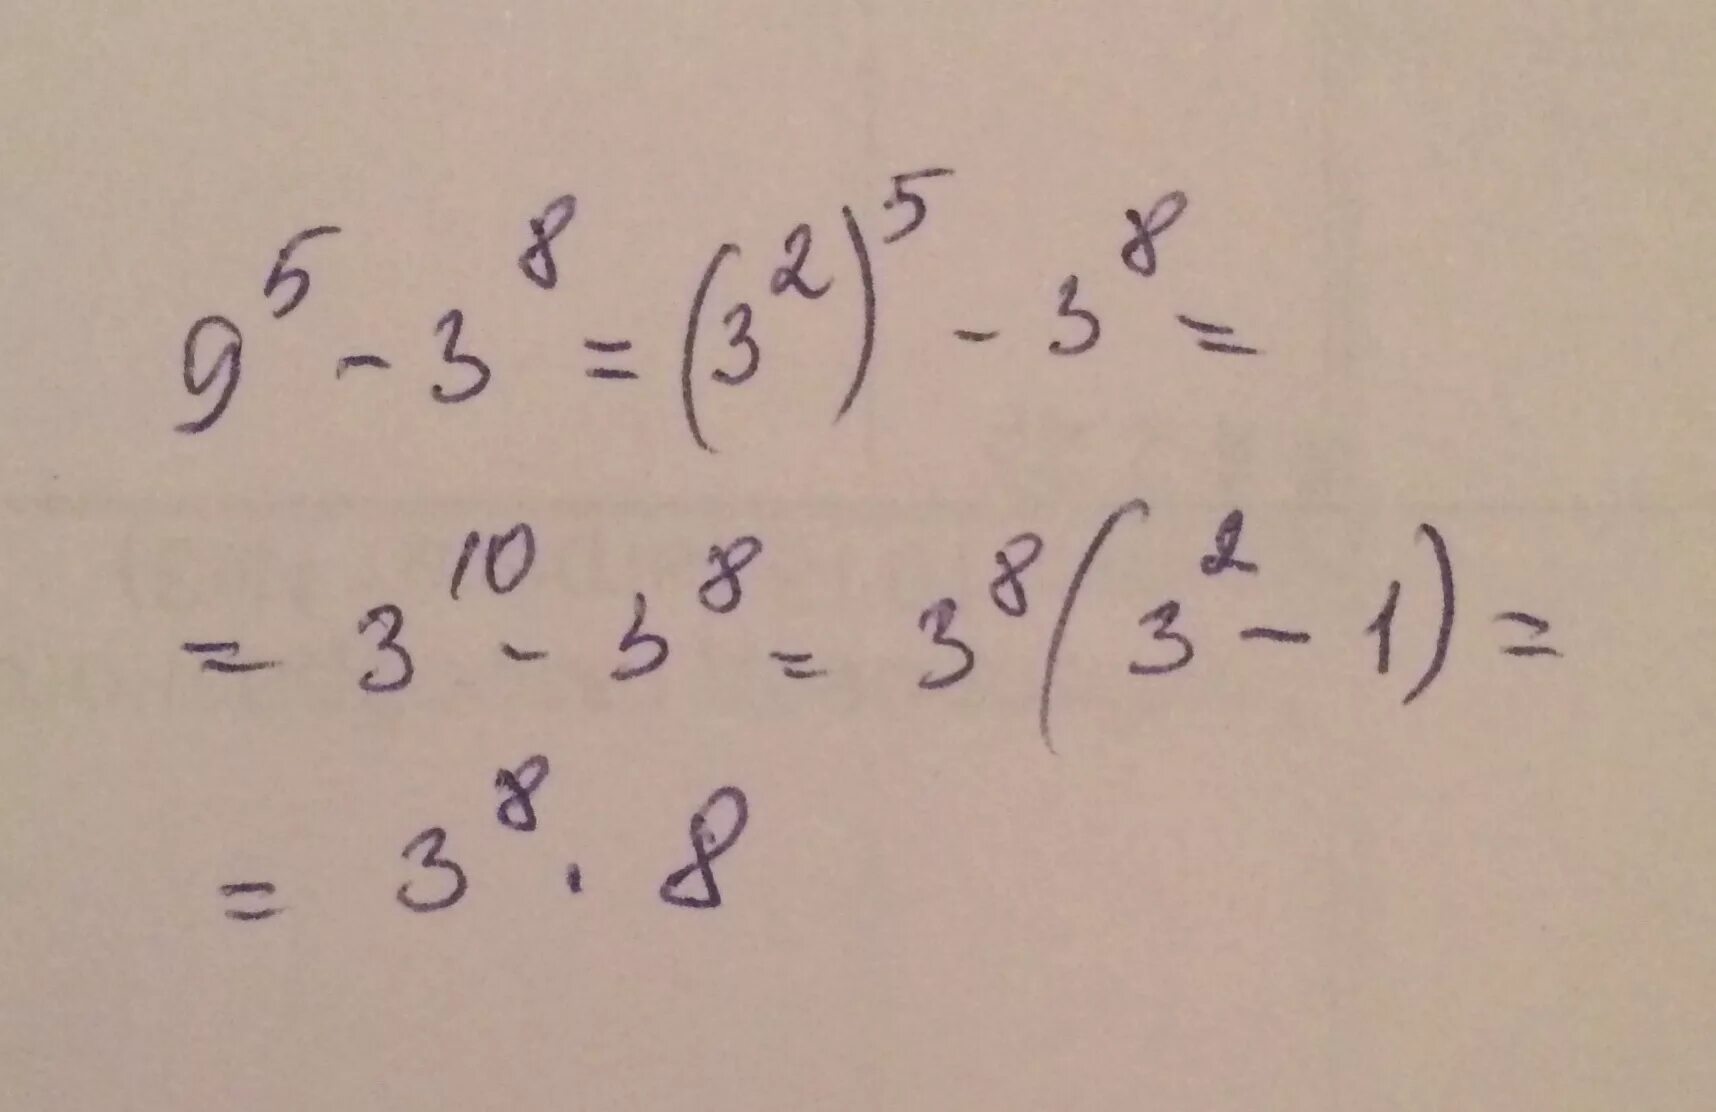 9⁵ - 3⁸ = (3²)⁵ - 3⁸ =
= 3¹⁰ - 3⁸ = 3⁸(3² - 1) =
= 3⁸ · 8